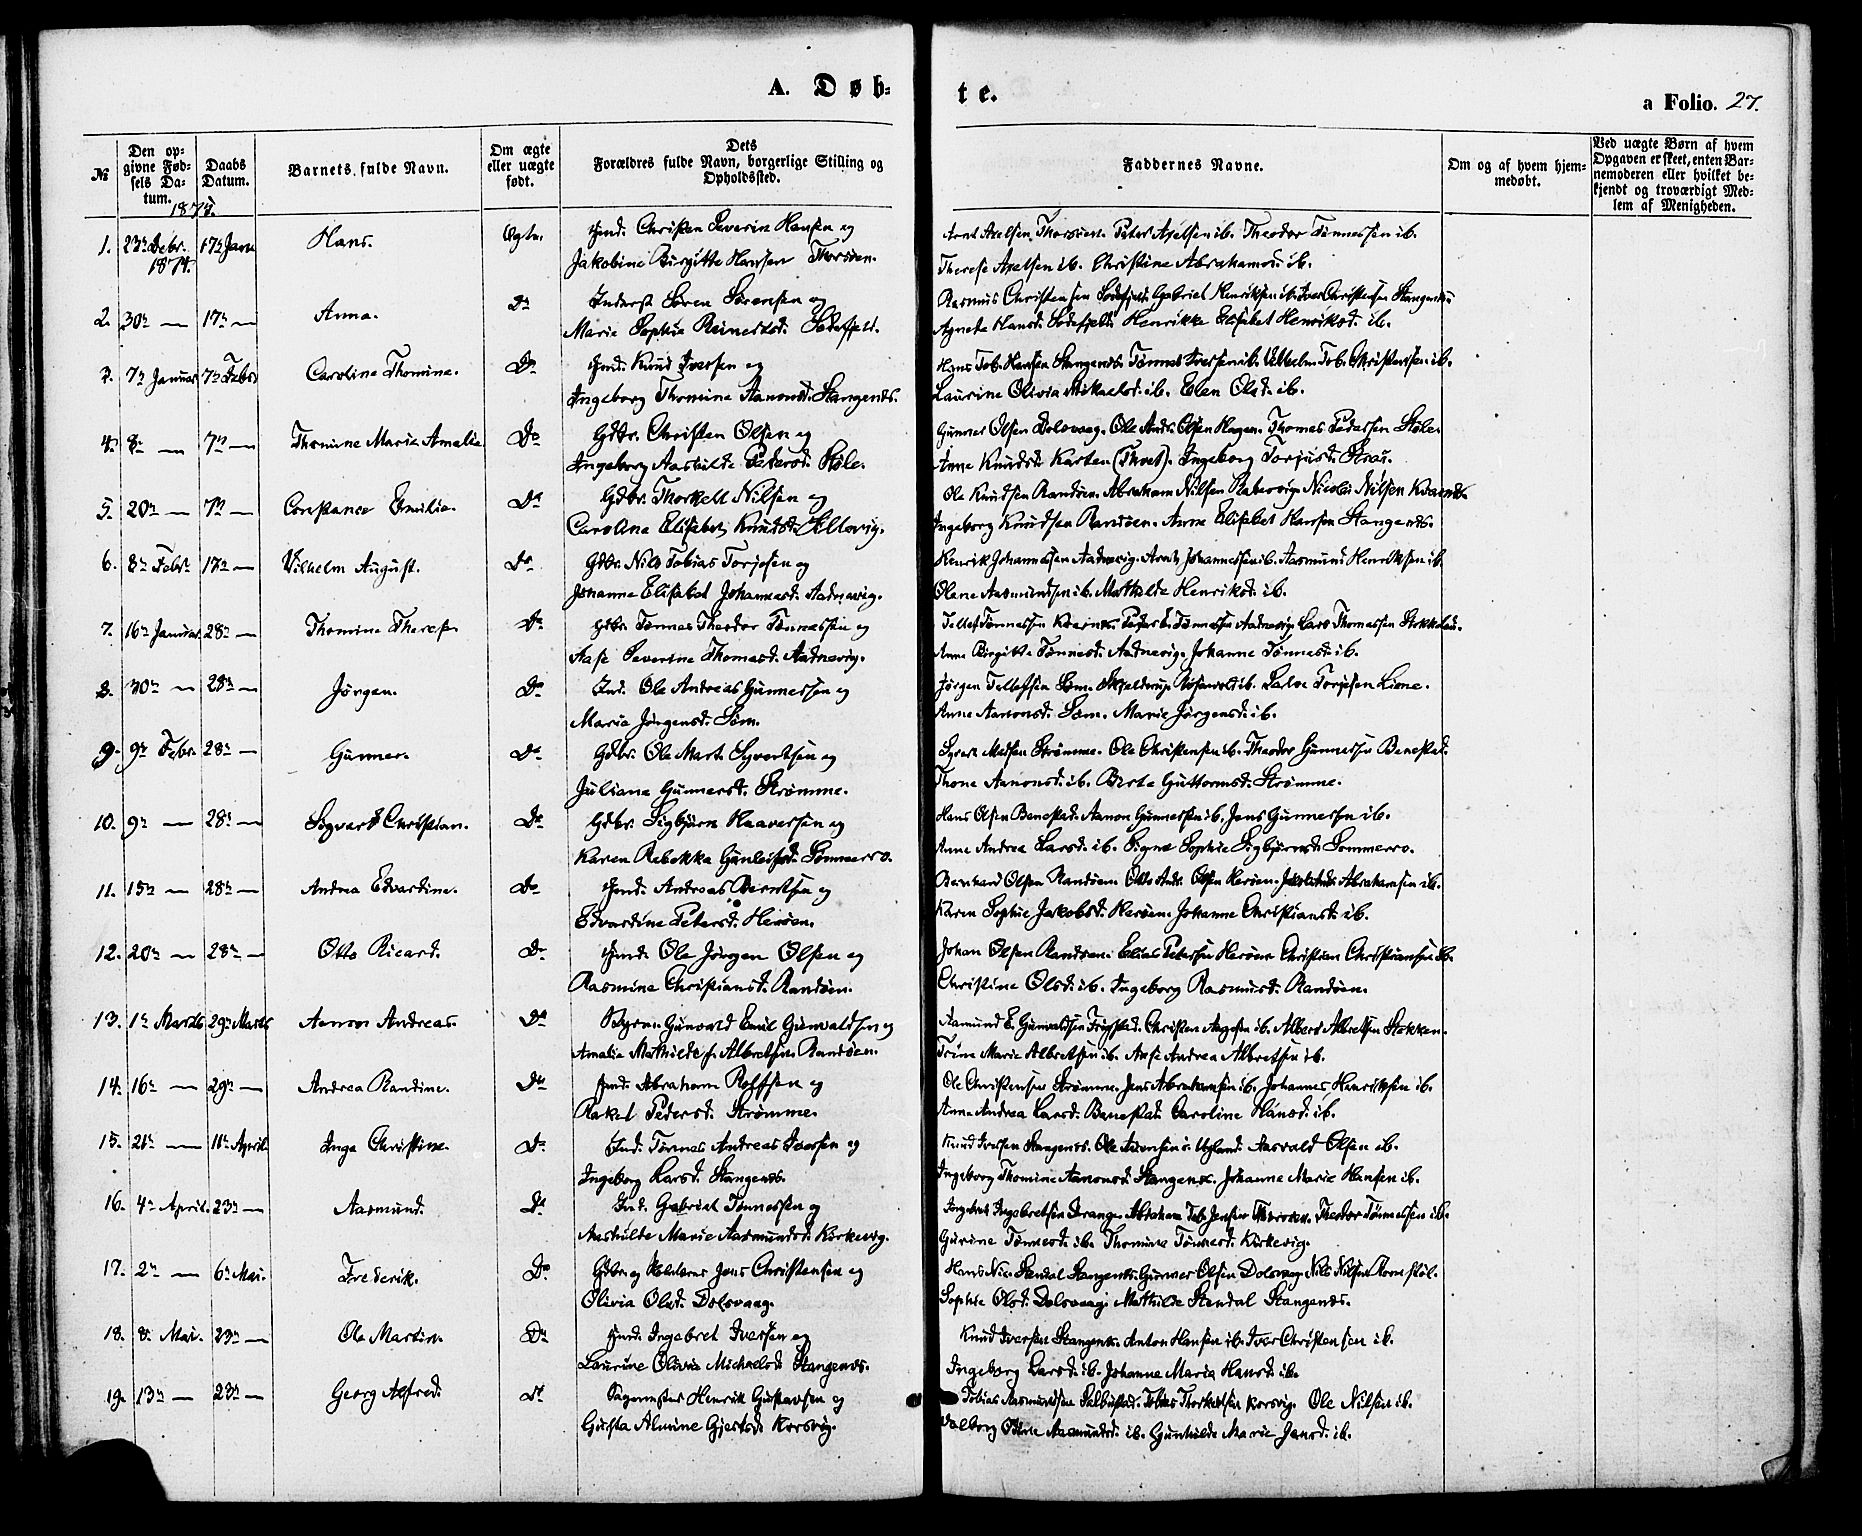 A. Døb-
te.
a Folio. 27.
№
Den opgivne Fødsels Datum.
Daabs Datum.
Barnets fulde Navn.
Om ægte eller uægte født.
Dets Forældres fulde Navn, borgerlige Stilling og Opholdssted.
Faddernes Navne.
Om og af hvem hjemmedøbt.
Ved uægte Børn af hvem Opgaven er skeet, enten Barnemoderen eller hvilket bekjendt og troværdigt Medlem af Menigheden.
1875.
1. 23de Debr. 1874. 17de Janr Hans. Ægte. Christen Severin Hansen og
Jakobine Birgitte Hansen Thorsøen.
Arnt Axelsen Thorsøen. Peter Axelsen ib. Theodor Tønnessen ib.
Therese Axelsen ib. Christine Abrahamsd. ib.
2. 30te — 17de — Anna. Do Inderst Søren Sørensen og
Marie Sophie Reinertsd. Sødefjeld.
Rasmus Christensen Sødefjeld. Gabriel Henriksen ib. Iver Christensen Stangenæs
Agnete Hansd. Sødefjeld. Henrikke Elisabet Henriksd. ib.
3. 7de Januar 7de Febr Caroline Thomine. Do Knud Iversen og
Ingeborg Thomine Aanonsd. Stangenæs.
Hans Tob. Hansen Stangenæs. Tønnes Iversen ib. Vilhelm Tob. Christensen ib.
Laurine Olivia Mikaelsd. ib. Elen Olsd. ib.
4. 8de — 7de — Thomine Marie Amalie Do Gdbr. Christen Olsen og
Ingeborg Aashilde Pedersd. Støle.
Gunner Olsen Dolsvaag. Ole Ands. Olsen Hagen. Thomas Pedersen Støle.
Anne Knudsd. Karten (Thvet). Ingeborg Torjusd. Strai.
5. 20de — 7de — Constance Emilie. Do Gdbr. Thorkell Nilsen og
Caroline Elisabet Knudsd.
Ole Knudsen Randøen. Abraham Nilsen Nicolai Nilsen
Ingeborg Knudsen Randøen. Anne Elisabet Hansen Stangenæs.
6. 8de Febr. 17de — Vilhelm August. Do Gdbr. Nils Tobias Torjesen og
Johanne Elisabet Johannesd. Aadnevig.
Henrik Johannessen Aadnevig. Arnt Johannessen ib. Aasmund Henriksen ib.
Olene Aasmundsen ib. Mathilde Henriksd. ib.
7. 16de Januar 28de — Thomine Therese Do Gdbr. Tønnes Theodor Tønnessen og
Aase Severine Thomasd. Aadnevig.
Tellef Tønnessen Tønnessen Aadnevig. Lars Thomassen
Anne Birgitte Tønnesd. Aadnevig. Johanne Tønnesd. ib.
8. 30te — 28de — Jørgen. Do Ind. Ole Andreas Gunnessen og
Maria Jørgensd. Søm.
Jørgen Tellefsen Søm. ib. Torjesen Liene.
Anne Aanonsd. Søm. Marie Jørgensd. ib.
9. 9de Febr. 28de — Gunner. Do Gdbr. Ole Mart. Syvertsen og
Juliane Gunnersd. Strømme.
Syvert Madsen Strømme. Ole Christensen ib. Theodor Gunnessen Benestad.
Thone Aanonsd. ib. Berte Guttormsd. Strømme.
10. 9de — 28de — Sigvard Christian. Do Gdbr. Sigbjørn Haaversen og
Karen Rebekka Gunleifsd. Sømmero.
Hans Olsen Benestad. Aanon Gunnessen ib. Jens Gunnessen ib.
Anne Andrea Larsd. ib. Signe Sophie Sigbjørnsd. Sommerro.
11. 15de — 28de — Andrea Edvardine. Do Andreas Berntsen og
Edvardine Petersd. Herøen.
Bernhard Olsen Randøen. Otto Andr. Olsen Herøen. Abrahamsen ib.
Karen Sophie Jakobsd. Herøen. Johanne Christiansd. ib.
12. 20de — 28de — Otto Ricard. Do Ole Jørgen Olsen og
Rasmine Christiansd. Randøen.
Johan Olsen Randøen. Elias Petersen Herøen. Christian Christiansen ib.
Christine Olsd. ib. Ingeborg Rasmusd. Randøen.
13. 1ste Marts 29de Marts Aanon Andreas. Do Gunvald Emil Gunvaldsen og
Amalie Mathilde f. Albretsen. Randøen.
Aamund E. Gunvaldsen Christen ib. Albert Albretsen
Trine Marie Albretsen ib. Aase Andrea Albretsen ib.
14. 16de — 29de — Andrea Randine. Do Abraham Rolfsen og
Rakel Pedersd. Strømme.
Ole Christensen Strømme. Jens Abrahamsen ib. Johannes Henriksen ib.
Anne Andrea Larsd. Benestad. Caroline Hansd. ib.
15. 21de — 11te April Inga Christine. Do Ind. Tønnes Andreas Iversen og
Ingeborg Larsd. Stangenæs.
Knud Iversen Stangenæs. Ole Ugland. Aasvald Olsen ib.
Ingeborg Thomine Aanonsd. Stangenæs. Johanne Marie Hansen ib.
16. 4de April. 23de — Aasmund. Do Ind. Gabriel Tønnessen og
Aashilde Marie Aasmundsd. Kirkevig.
Ingebret Ingebretsen Abraham Tob. Jensen Theodor Tønnessen ib.
Gurine Tønnesd. ib. Thomine Tønnesd. Kirkevig.
17. 2de — 6te Mai. Frederik. Do Gdbr. og Jens Christensen og
Olivia Olsd. Dolsvaag.
Hans Nic. Stendal Stangenæs. Gunner Olsen Dolsvaag. Nils Nilsen
Sophie Olsd. Dolsvaag. Mathilde Stendal Stangenæs.
18. 8de Mai. 23de — Ole Martin. Do Ingebret Iversen og
Laurine Olivia Michaelsd. Stangenæs.
Knud Iversen Stangenæs. Anton Hansen ib. Iver Christensen ib.
Ingeborg Larsd. ib. Johanne Maria Hansd. ib.
19. 13de — 23de — Georg Alfred. Do Sagmester Henrik Gustavsen og
Gusta Almine Gjertsd. Korsvig.
Tobias Aasmundsen Tobias Thorkelsen Korsvig. Ole Nilsen ib.
Valborg Oline Aasmundsd. ib. Gunhilde Marie Jensd. ib.